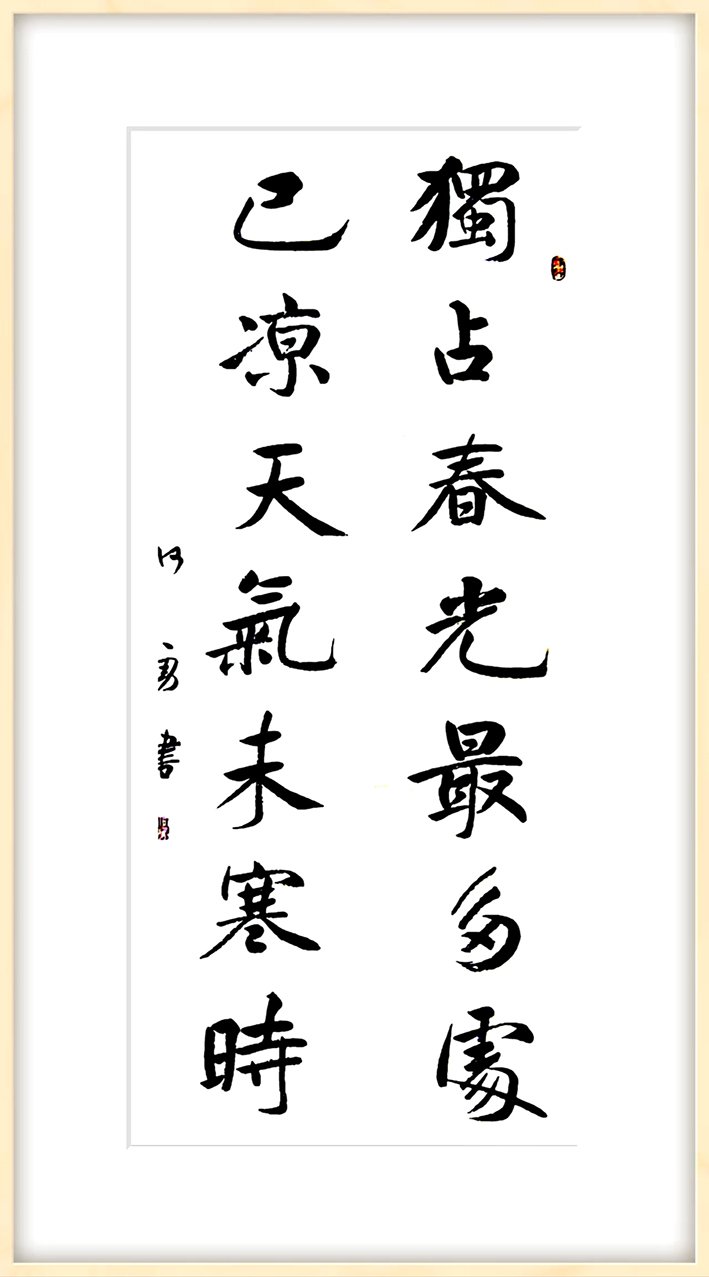 獨占春光最多處
已凉天氣未寒時
書